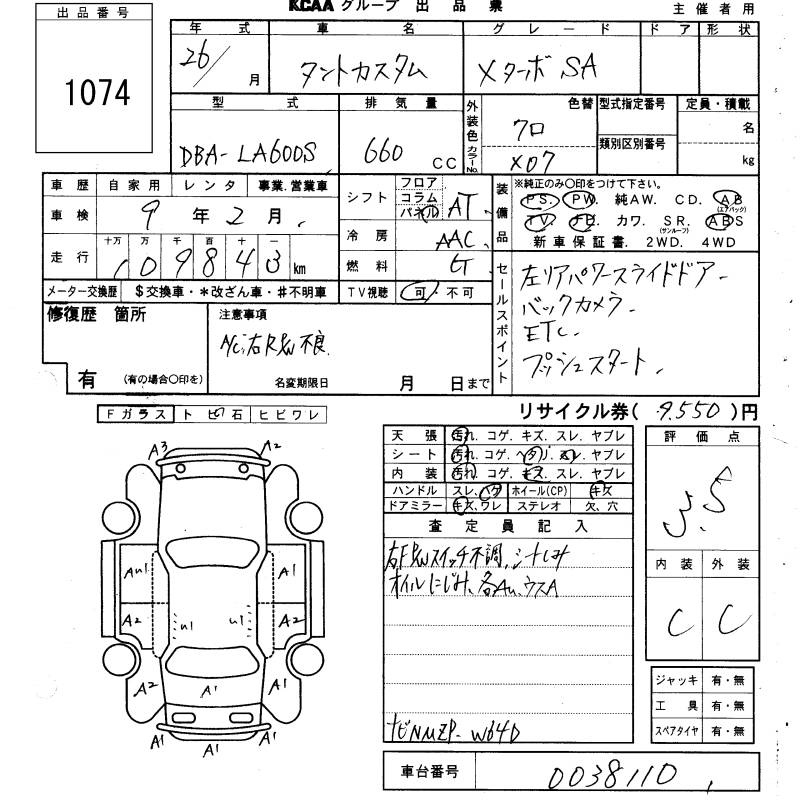 KCAA グループ 出品票 主催者用
出品番号 1074
年式 車名 グレード ドア 形状
26/ 月 タントカスタム Xターボ SA
型式 排気量 外装色 カラーNo. 色替 型式指定番号 定員・積載
DBA-LA600S 660 CC クロ X07 類別区別番号 名 kg
車歴 自家用 レンタ 事業.営業車
車検 9年2月
走行 十万 万 千 百 十 一
109843 km
メーター交換歴 $交換車・*改ざん車・#不明車
シフト フロア コラム パネル AT
冷房 AAC
燃料
TV視聴 可・不可
装備品 ※純正のみ〇印をつけて下さい。
PS. PW. 純AW. CD. AB (エアバック)
TV. カワ. SR. (サンルーフ) ABS
新車保証書. 2WD. 4WD
セールスポイント
左リアパワースライドドア
バックカメラ
ETC
プッシュスタート
修復歴 箇所
有 (有の場合〇印を)
注意事項
A/C,右R 不良
名変期限日 月 日まで
リサイクル券( 9.550 )円
Fガラス トビ石 ヒビワレ
A3 A2
AU1 A1
A2 U1 U1 A2
A2 A1 A1
A1 A1 A1
天張 汚れ. コゲ. キズ. スレ. ヤブレ
シート 汚れ. コゲ. スレ. ヤブレ
内装 汚れ. コゲ. キズ. スレ. ヤブレ
ハンドル スレ. ハゲ ホイール(CP) キズ
ドアミラー キズ、ワレ ステレオ 欠、穴
査定員記入
スイッチ不調, シートしみ
オイルにじみ、各AU、ウスA
ナビNMZP-W64D
評価点
3.5
内装 外装
C C
ジャッキ 有・無
工具 有・無
スペアタイヤ 有・無
車台番号 0038110